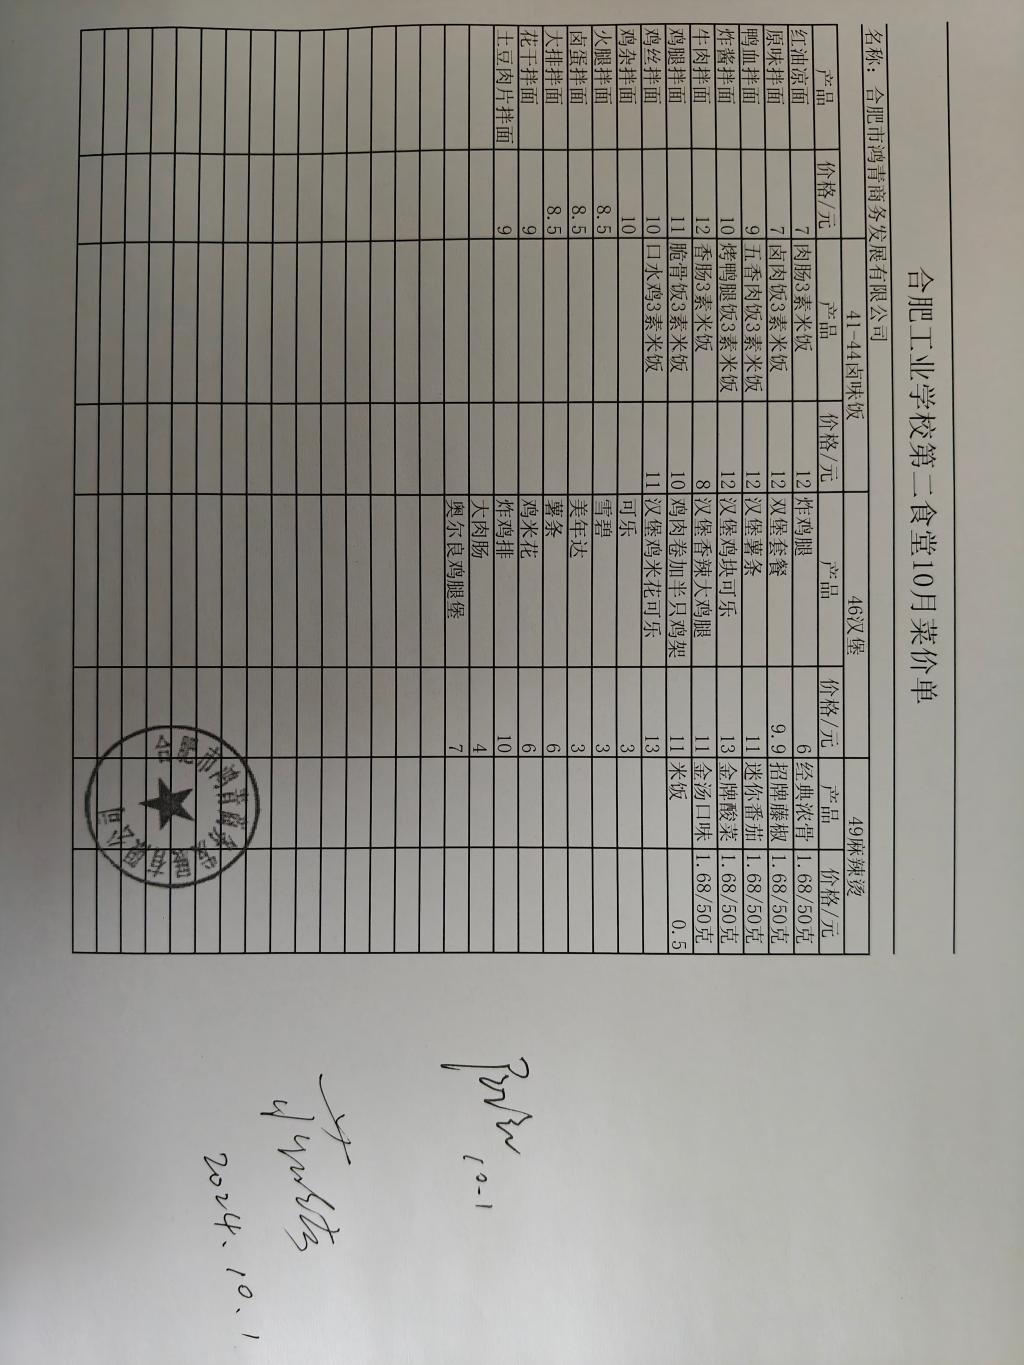 合肥工业学校第二食堂10月菜价单
名称：合肥市鸿青商务发展有限公司
41-44卤味饭 46汉堡 49麻辣烫
产品 价格/元 产品 价格/元 产品 价格/元 产品 价格/元
红油凉面 7 肉肠3素米饭 12 炸鸡腿 6 经典浓骨 1.68/50克
原味拌面 7 卤肉饭3素米饭 12 双堡套餐 9.9 招牌藤椒 1.68/50克
鸭血拌面 9 五香肉饭3素米饭 12 汉堡薯条 11 迷你番茄 1.68/50克
炸酱拌面 10 烤鸭腿饭3素米饭 12 汉堡鸡块可乐 13 金牌酸菜 1.68/50克
牛肉拌面 12 香肠3素米饭 8 汉堡香辣大鸡腿 11 金汤口味 1.68/50克
鸡腿拌面 11 脆骨饭3素米饭 10 鸡肉卷加半只鸡架 11 米饭 0.5
鸡丝拌面 10 口水鸡3素米饭 11 汉堡鸡米花可乐 13
鸡杂拌面 10 可乐 3
火腿拌面 8.5 雪碧 3
卤蛋拌面 8.5 美年达 3
大排拌面 8.5 薯条 6
花干拌面 9 鸡米花 6
土豆肉片拌面 9 炸鸡排 10
大肉肠 4
奥尔良鸡腿堡 7
合肥市鸿青商务发展有限公司
10-1
2024.10.1